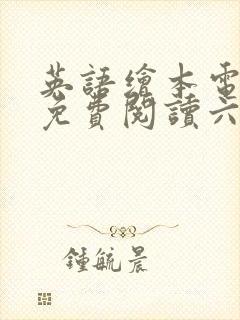 英語繪本電
免費閱讀六
鍾毓晨